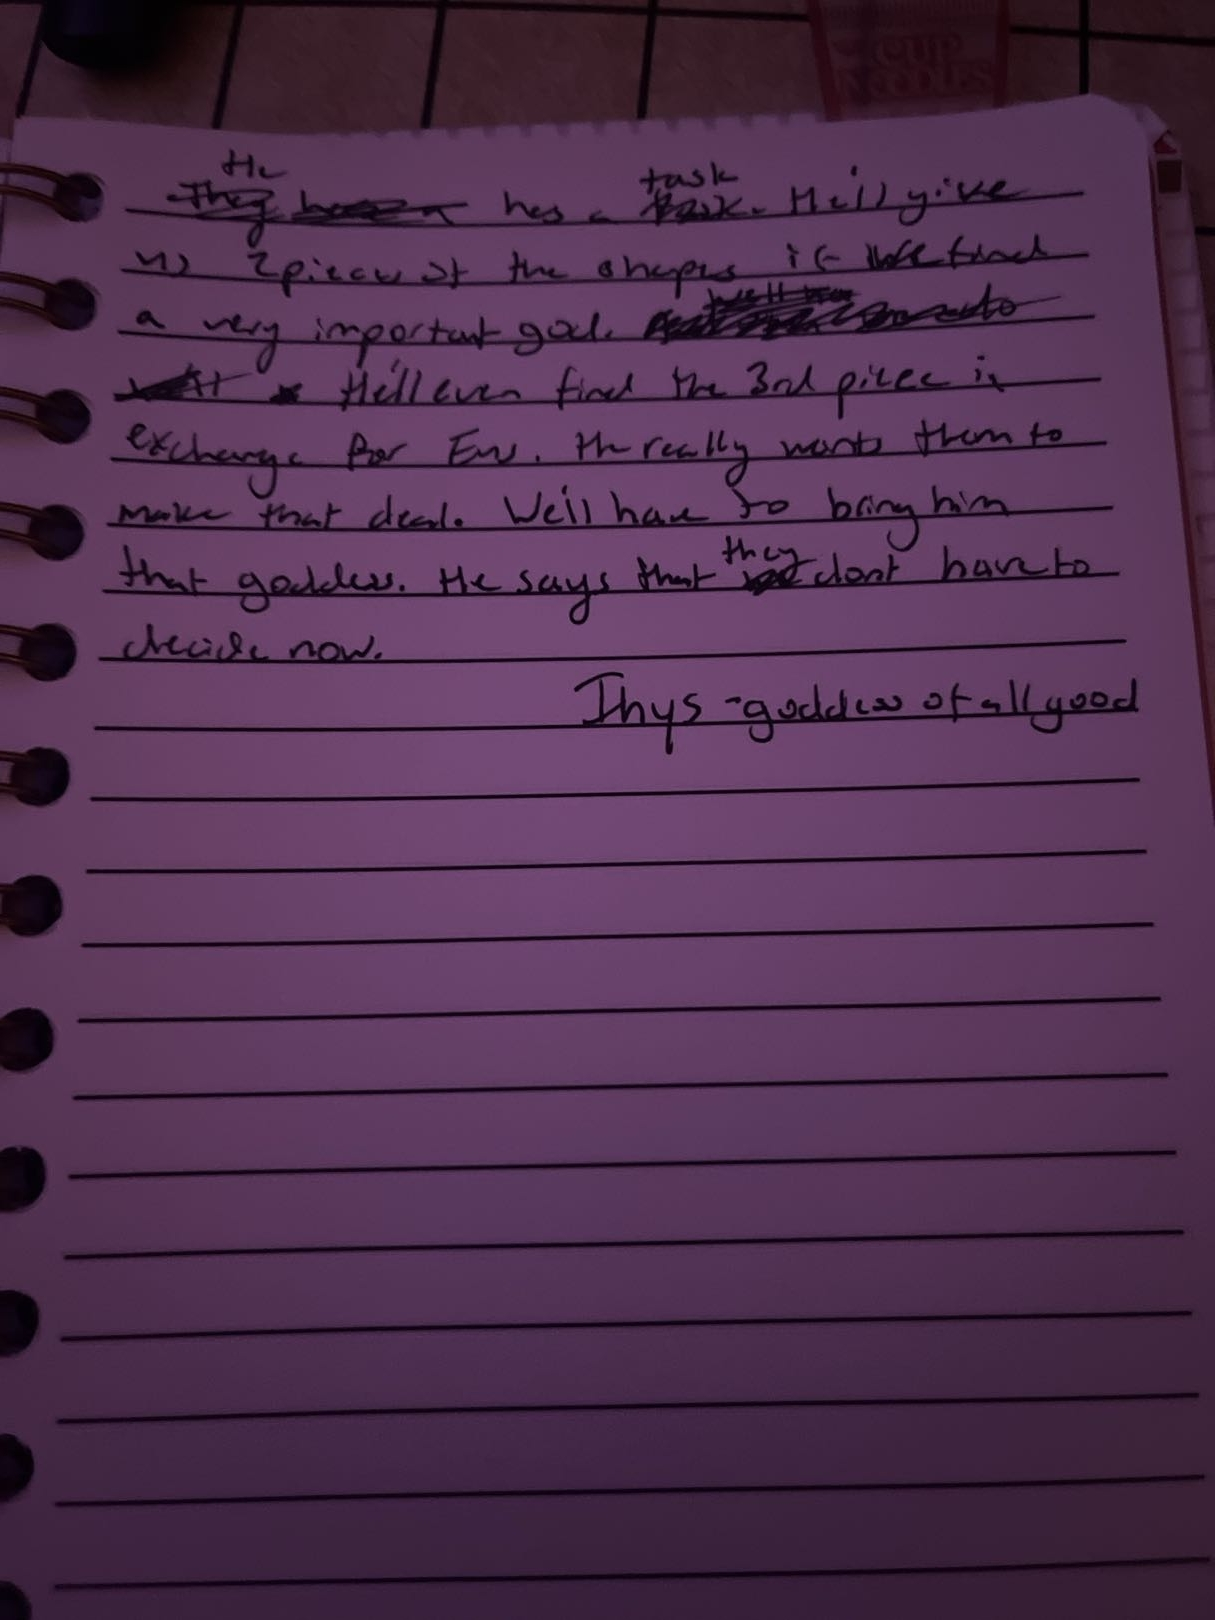 CUP
NOODLES
He task
They has a task. He'll give
us 2 pieces of the shapes if we find
a very important god.
He'll even find the 3rd piece in
exchange for Em. He really wants them to
make that deal. We'll have to bring him
that goddess. He says that they dont have to
decide now.
Ihys - goddess of all good